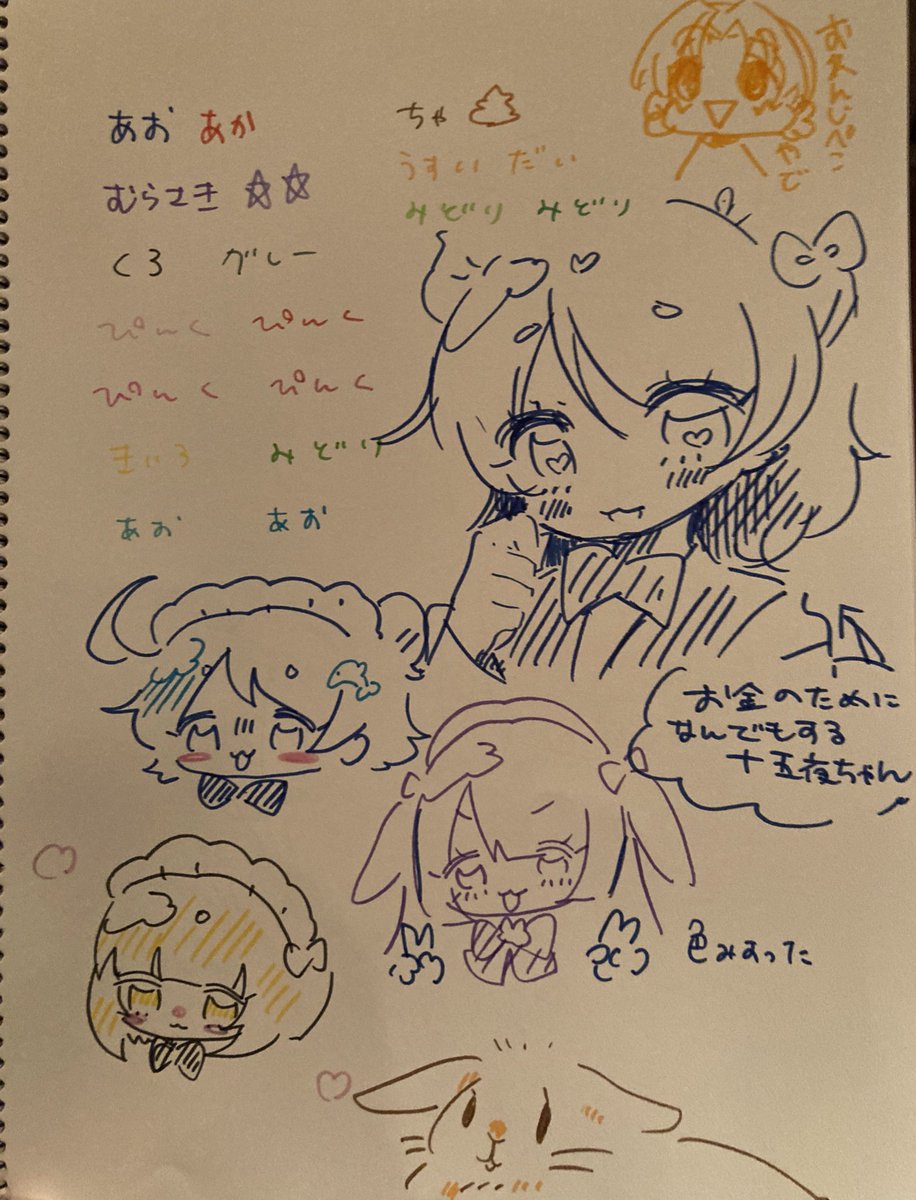 あお あか
むらさき
くろ グレー
ぴんく ぴんく
ぴんく ぴんく
きいろ みどり
あお あお
ちゃ
うすい だい
みどり みどり
おえんじぺこ
やで
お金のために
なんでもする
十五夜ちゃん
色みすった